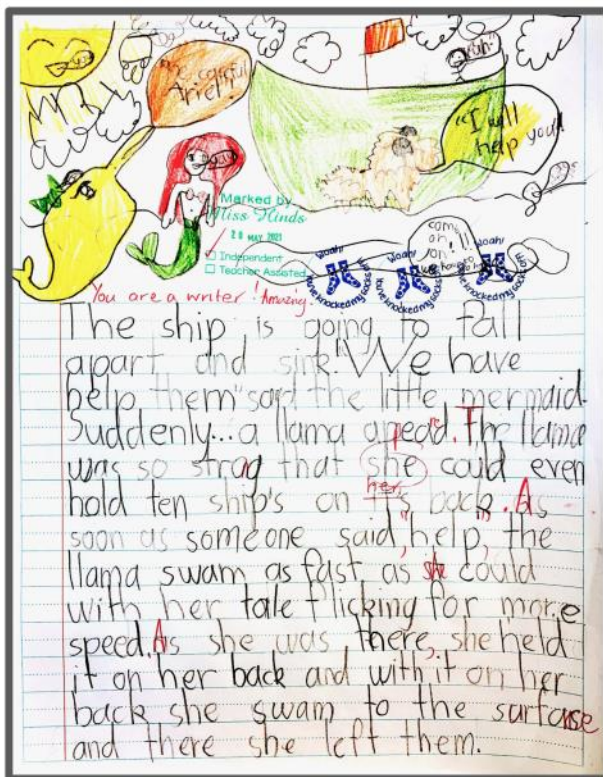 "Be careful Ariel!"
"ah!"
"I will help you"
Marked by
Miss Hinds
20 MAY 2021
Independent
Teacher Assisted
come on!!
Woah!
You've knocked my socks
Woah!
You've knocked my socks
Woah!
You've knocked my socks
You are a writer! Amazing!
The ship is going to fall
apart and sink."We have
help them"said the little mermaid.
Suddenly...a llama apeard. The llama
was so strag that she could even
her
hold ten ship's on it's back. As
soon as someone said,"help", the
llama swam as fast as she could
with her tale flicking for more
speed. As she was there, she held
it on her back and with it on her
back she swam to the surface
and there she left them.